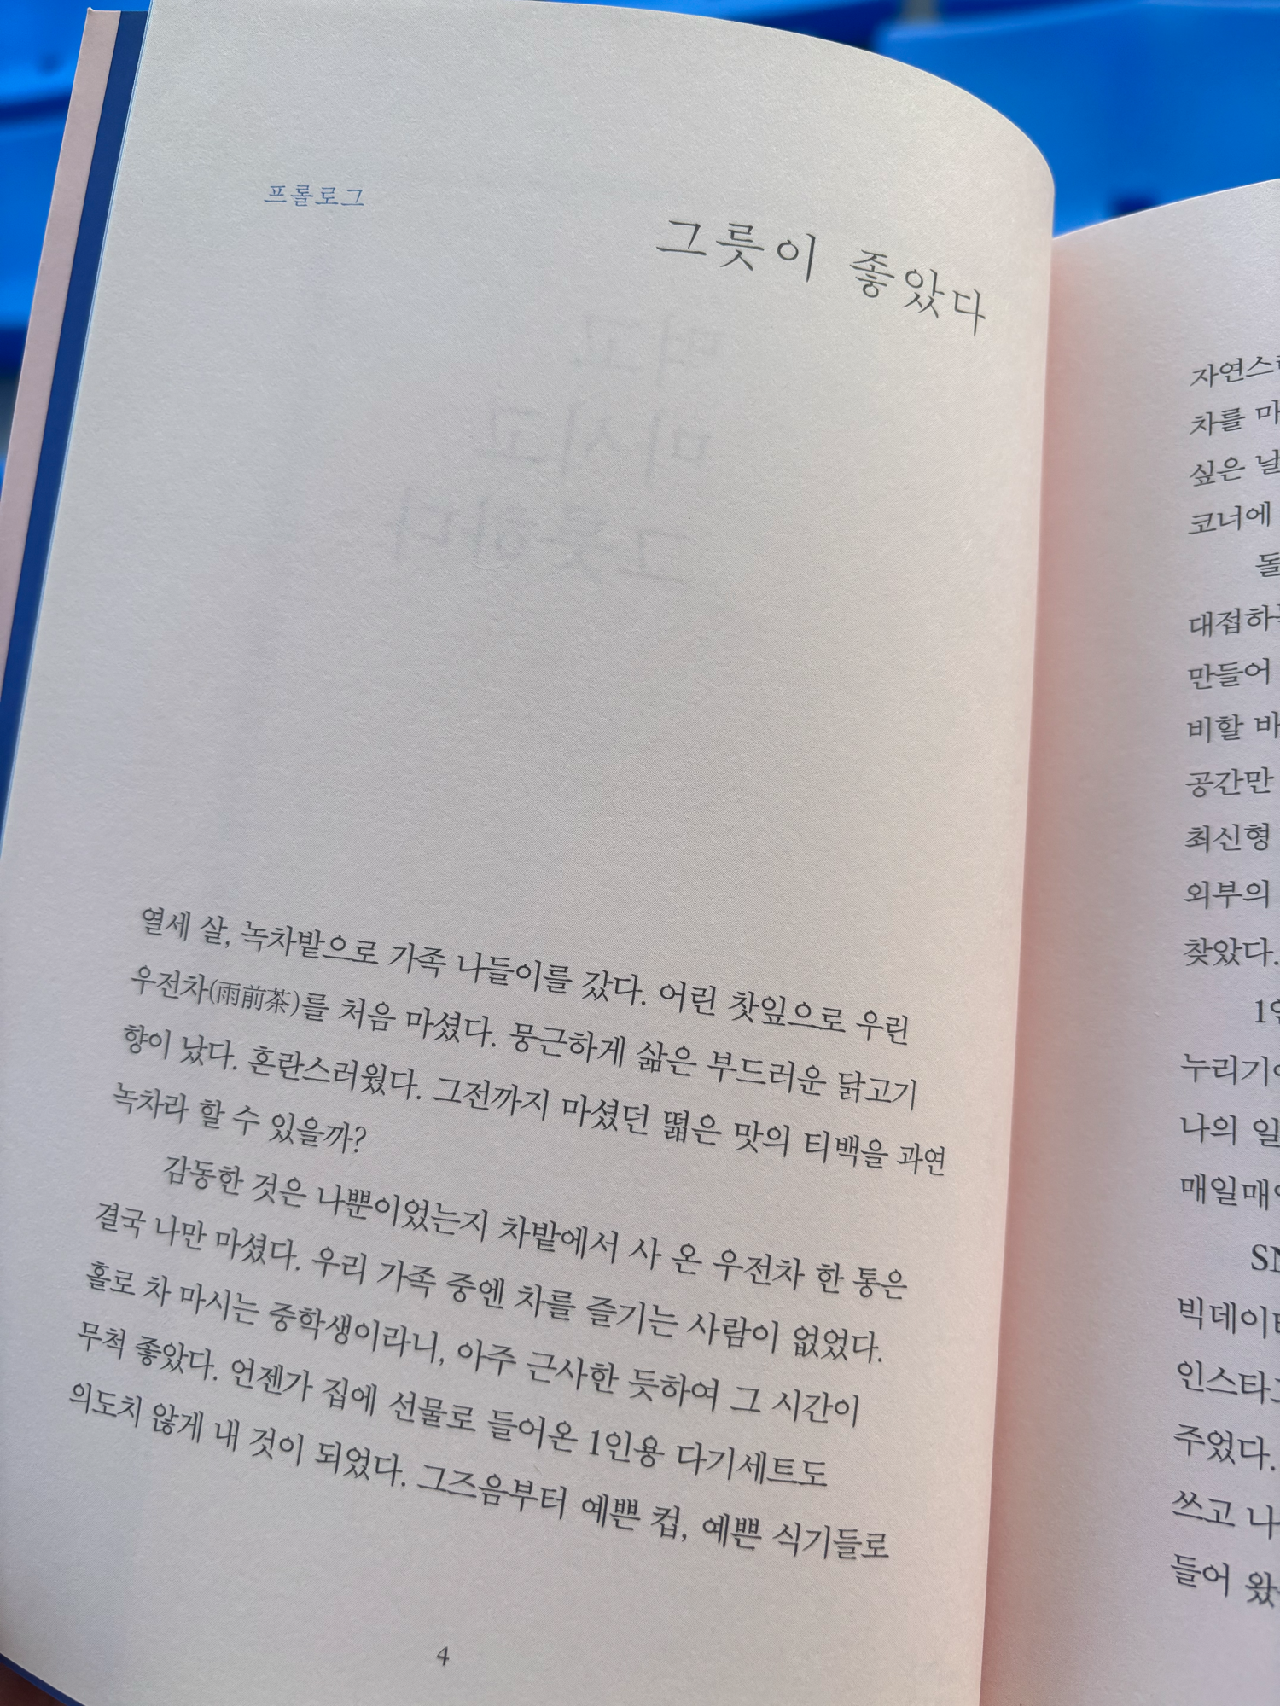 프롤로그
그릇이 좋았다
열세 살, 녹차밭으로 가족 나들이를 갔다. 어린 찻잎으로 우린
우전차(雨前茶)를 처음 마셨다. 뭉근하게 삶은 부드러운 닭고기
향이 났다. 혼란스러웠다. 그전까지 마셨던 떫은 맛의 티백을 과연
녹차라 할 수 있을까?
감동한 것은 나뿐이었는지 차밭에서 사 온 우전차 한 통은
결국 나만 마셨다. 우리 가족 중엔 차를 즐기는 사람이 없었다.
홀로 차 마시는 중학생이라니, 아주 근사한 듯하여 그 시간이
무척 좋았다. 언젠가 집에 선물로 들어온 1인용 다기세트도
의도치 않게 내 것이 되었다. 그즈음부터 예쁜 컵, 예쁜 식기들로
4
차를
싶은
코너에
만들어
비할
공간만
최신형
외부의
찾았다.
나의
주었다.
쓰고
들어